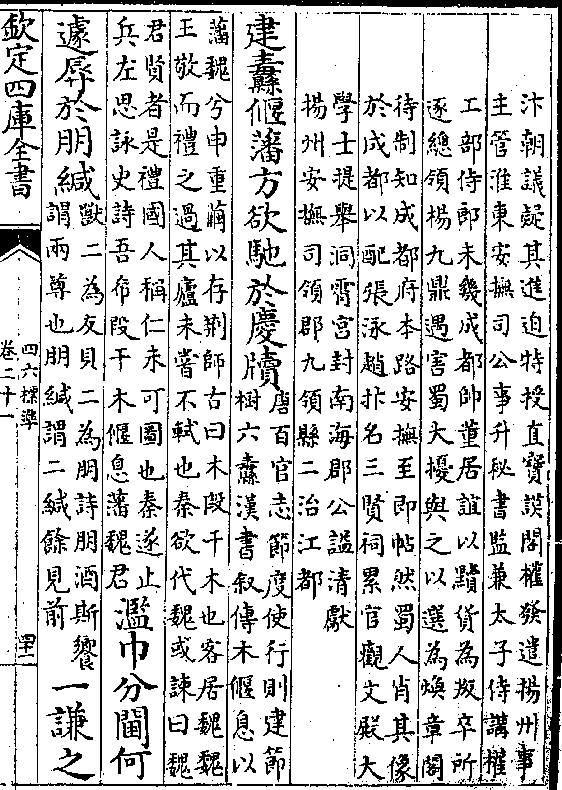 汴朝議疑其進迫特授直寶謨閣權發遣揚州事
主管淮東安撫司公事升秘書監兼太子侍講權
工部侍郎未幾成都帥董居誼以黷貨為叛卒所
逐總領楊九鼎遇害蜀大擾與之以選為煥章閣
待制知成都府本路安撫至即帖然蜀人肖其像
於成都以配張泳趙抃名三賢祠累官觀文殿大
學士提舉洞霄宮封南海郡公謚清獻
揚州安撫司領郡九領縣二治江都
建纛偃藩方欲馳於慶牘
唐百官志節度使行則建節
樹六纛漢書叙傳木偃息以
藩魏兮申重繭以存荆師古曰木段干木也客居魏魏
王敬而禮之過其廬未嘗不軾也秦欲代魏或諫曰魏
君賢者是禮國人稱仁未可圖也秦遂止
兵左思詠史詩吾希段干木偃息藩魏君
濫巾分閫何
遽辱於朋緘
獸二為友貝二為朋詩朋酒斯饗
謂兩尊也朋緘謂二緘餘見前
一謙之
欽定四庫全書
四六標準
卷二十一